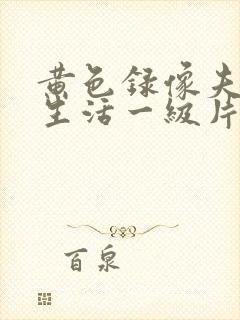 黄色録像夫
生活一級片
百泉